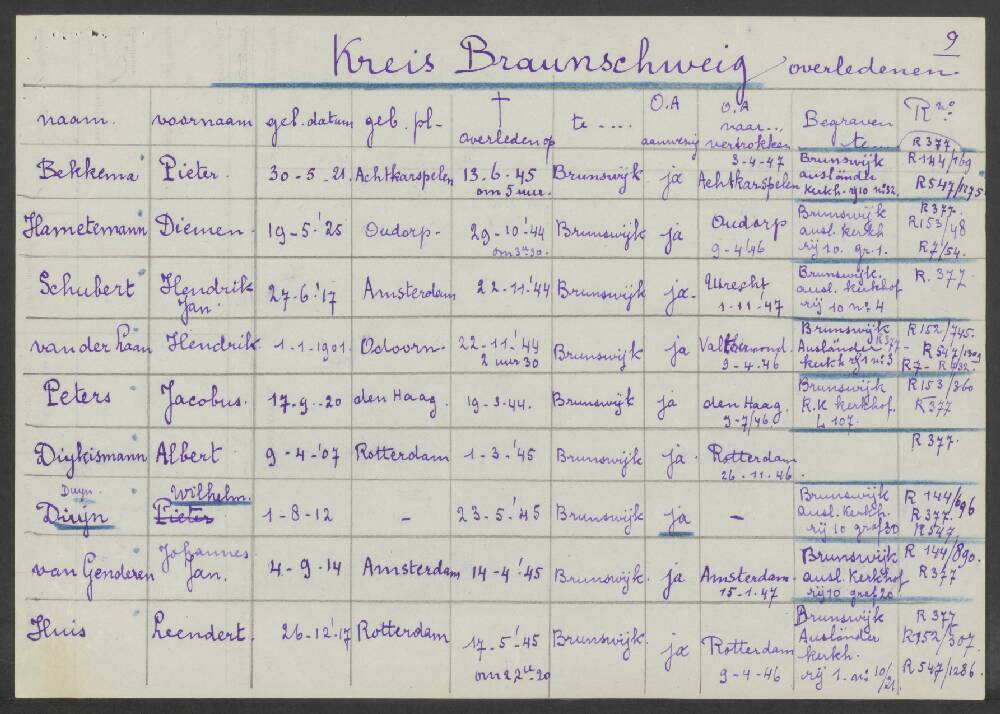 9
Kreis Braunschweig overledenen
naam. voornaam geb. datum geb. pl- † overleden op te .... O.A aanwezig O.A naar... vertrokken Begraven te R no.
Bekkema Pieter. 30-5-21. Achtkarspelen 13.6.45 om 5 uur. Brunswijk ja 3-4-47 Achtkarspelen Brunswijk ausländer kerkh. rij 10 no 32. R377 R144/769 R547/1195
Hametemann Diemen. 19-5-'25 Oudorp- 29-10-'44 om 3 u 30. Brunswijk ja Oudorp 9-4-'46 Brunswijk ausl. kerkh rij 10. gr. 1. R377. R153/48 R7/54.
Schubert Hendrik Jan 27-6-'17 Amsterdam 22-11-'44 Brunswijk ja. Utrecht 1-11-'47 Brunswijk. ausl. kerkhof rij 10 no 4 R.377
van der Laan Hendrik 1-1-1901. Odoorn- 22-11-'44 2 uur 30 Brunswijk ja Valthermond. 9-4-46 Brunswijk Ausländer kerkh rij 1 no 3 R152/745. R377 R547/1301 R7-
Peters Jacobus. 17-9-20 den Haag. 19-9-44. Brunswijk ja den Haag. 9-7/46 Brunswijk R.K kerkhof. L 107. R153/360 R377
Diykismann Albert 9-4-'07 Rotterdam 1-3-'45 Brunswijk ja. Rotterdam 26-11-46. R377.
Duyn. Duyn Wilhelm. Pieter 1-8-12 - 23-5-'45 Brunswijk ja - Brunswijk ausl. kerkh. rij 10 graf 30 R144/696 R377. R547,
van Genderen Johannes Jan. 4-9-14 Amsterdam 14-4-'45 Brunswijk. ja Amsterdam. 15-1-47 Brunswijk ausl. kerkhof rij 10 graf 20 R144/890. R377
Huis Leendert. 26-12-'17 Rotterdam 17-5-'45 om 22 u-20 Brunswijk. ja Rotterdam 9-4-46 Brunswijk Ausländer kerkh. rij 1. no 10/21. R377 R152/307 R547/1286.